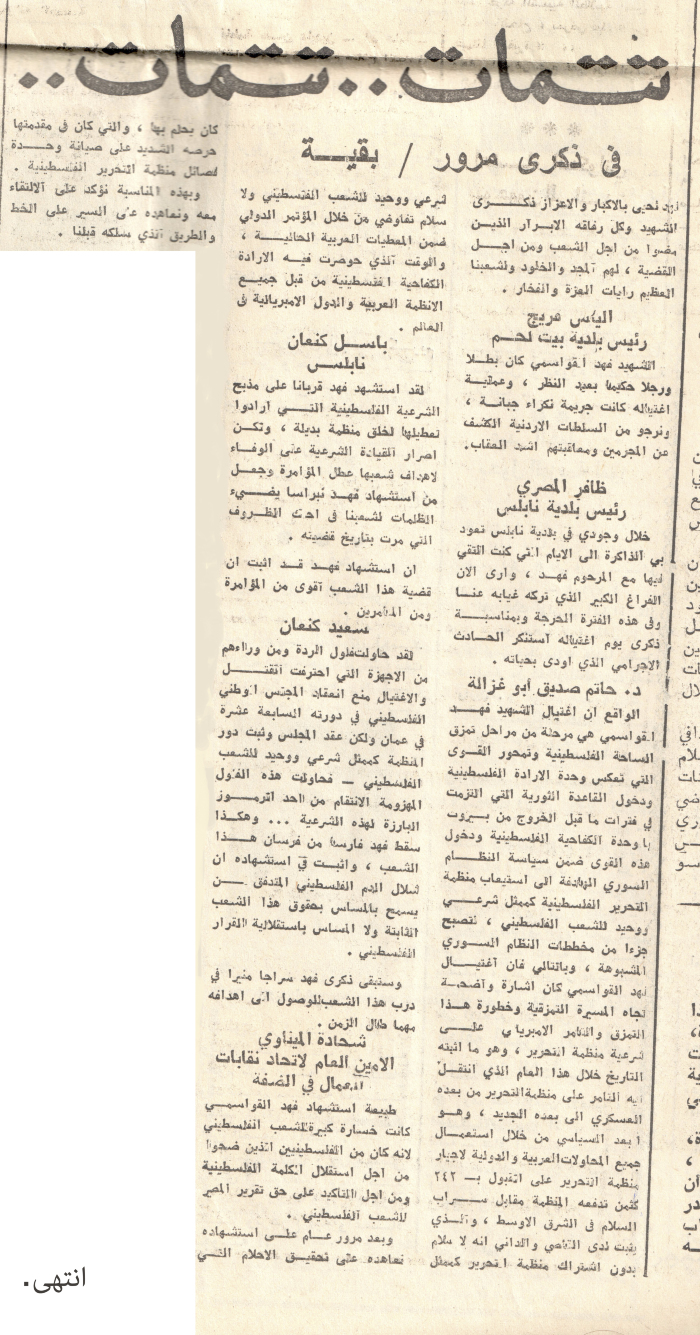 تتمات.. تتمات..
في ذكرى مرور / بقية
نحيي بالاكبار والاعتزاز ذكــرى
الشهيد وكل رفاقه الابـرار الذيـن
مضوا من اجل الشعب ومن اجــل
القضية ، لهم المجد والخلود ولشعبنا
العظيم رايات العزة والفخار .
الياس فريج
رئيس بلدية بيت لحـم
الشهيد فهد القواسمي كان بطـلا
ورجلا حكيما بعيد النظر ، وعمليـة
اغتياله كانت جريمة نكراء جبانــة ،
ونرجو من السلطات الاردنية الكشف
عن المجرمين ومعاقبتهم اشد العقاب.
ظافر المصري
رئيس بلدية نابلس
خلال وجودي في بلدية نابلس تعود
بي الذاكرة الى الايام التي كنت التقي
فيها مع المرحوم فهـد ، وارى الان
الفراغ الكبير الذي تركه غيابه عنـا
وفي هذه الفترة الحرجة وبمناسبــة
ذكرى يوم اغتياله استنكر الحـادث
الاجرامي الذي اودى بحياته .
د. حاتم صديق أبو غزالة
الواقع ان اغتيال الشهيد فهــد
القواسمي هي مرحلة من مراحل تمزق
الساحة الفلسطينية وتمحور القــوى
التي تعكس وحدة الارادة الفلسطينية
ودخول القاعدة الثورية التي التزمت
في فترات ما قبل الخروج من بـيروت
بالوحدة الكفاحية الفلسطينية ودخول
هذه القوى ضمن سياسة النظــام
السوري الهادفة الى استيعاب منظمة
التحرير الفلسطينية كممثل شرعــي
ووحيد للشعب الفلسطيني ، لتصبح
جزءا من مخططات النظام الســوري
المشبوهة ، وبالتالي فان اغتيــال
فهد القواسمي كان اشارة واضحـة
تجاه المسيرة التمزقية وخطورة هـذا
التمزق والتآمر الامبريالي علــى
شرعية منظمة التحرير ، وهو ما اثبته
التاريخ خلال هذا العام الذي انتقـل
فيه التآمر على منظمة التحرير من بعده
العسكري الى بعده الجديد ، وهــو
البعد السياسي من خلال استعمــال
جميع المحاولات العربية والدولية لاجبار
منظمة التحرير على القبول بـ ٢٤٢
كثمن تدفعه المنظمة مقابل ســراب
السلام في الشرق الاوسط ، والــذي
يثبت لدى القاصي والداني انه لا سلام
بدون اشتراك منظمة التحرير كممثل
شرعي ووحيد للشعب الفلسطيني ولا
سلام تفاوضي من خلال المؤتمر الدولي
ضمن المعطيات العربية الحاليــة ،
والوقت الذي حوصرت فيـه الارادة
الكفاحية الفلسطينية من قبل جميـع
الانظمة العربية والدول الامبريالية في
العالم .
باسـل كنعان
نابلــس
لقد استشهد فهد قربانا على مذبح
الشرعية الفلسطينية التــي ارادوا
تعطيلها لخلق منظمة بديلة ، ولكـن
اصرار القيادة الشرعية على الوفـاء
لاهداف شعبها عطل المؤامرة وجعـل
من استشهاد فهـد نبراسا يضـيء
الظلمات لشعبنا في احلك الظـروف
التي مرت بتاريخ قضيته .
ان استشهاد فهـد قـد اثبت ان
قضية هذا الشعب أقوى من المؤامرة
ومن المتآمرين .
سعيد كنعان
لقد حاولت فلول الردة ومن وراءهم
من الاجهزة التي احترفت القتــل
والاغتيال منع انعقاد المجلس الوطني
الفلسطيني في دورته السابعة عشرة
في عمان ولكن عقد المجلس وثبت دور
المنظمة كممثل شرعي ووحيد للشعب
الفلسطيني – فحاولت هذه الفلول
المهزومة الانتقام من احد الرمــوز
البارزة لهذه الشرعية ... وهكـذا
سقط فهد فارسا من فرسان هــذا
الشعب ، واثبت في استشهاده ان
شلال الدم الفلسطيني المتدفق لــن
يسمح بالمساس بحقوق هذا الشعب
الثابتة ولا المساس باستقلالية القرار
الفلسطيني .
وستبقى ذكرى فهد سراجا منيرا في
درب هذا الشعب للوصول الى اهدافه
مهما طال الزمن .
شحادة الميناوي
الامين العام لاتحاد نقابات
العمال في الضفة
طبيعة استشهاد فهد القواسمــي
كانت خسارة كبيرة للشعب الفلسطيني
لانه كان من الفلسطينيين الذين ضحوا
من اجل استقلال الكلمة الفلسطينية
ومن اجل التأكيد على حق تقرير المصير
للشعب الفلسطيني .
وبعد مرور عــام علــى استشهاده
نعاهده على تحقيـق الاحلام التــي
كان يحلم بها ، والتي كان في مقدمتها
حرصه الشديد على صيانة وحــدة
فصائل منظمة التحرير الفلسطينية .
وبهذه المناسبة نؤكد على الالتقاء
معه ونعاهده على السير على الخط
والطريق الذي سلكه قبلنا .
انتهى.